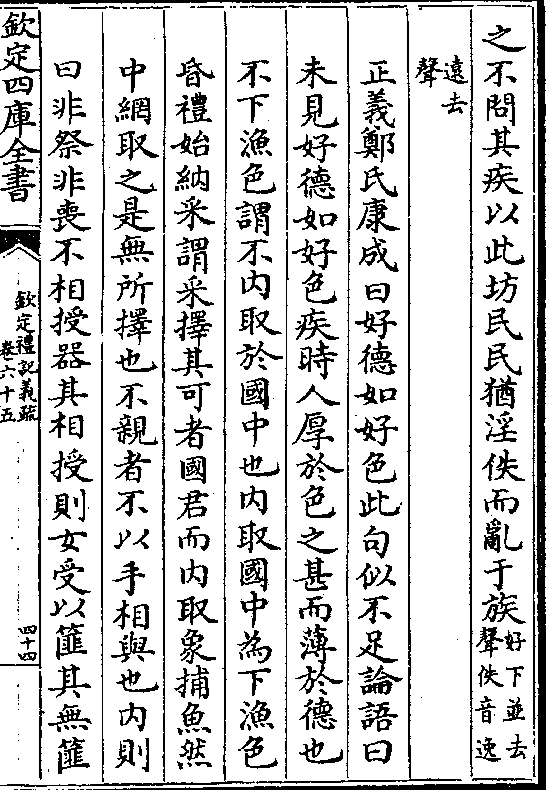 之不問其疾以此坊民民猶淫佚而亂于族好下並去聲佚音逸
遠去聲
正義鄭氏康成曰好德如好色此句似不足論語曰
未見好德如好色疾時人厚於色之甚而薄於德也
不下漁色謂不内取於國中也内取國中為下漁色
昏禮始納采謂采擇其可者國君而内取象捕魚然
中網取之是無所擇也不親者不以手相與也内則
曰非祭非喪不相授器其相授則女受以篚其無篚
欽定四庫全書
欽定禮記義疏
卷六十五
四十四